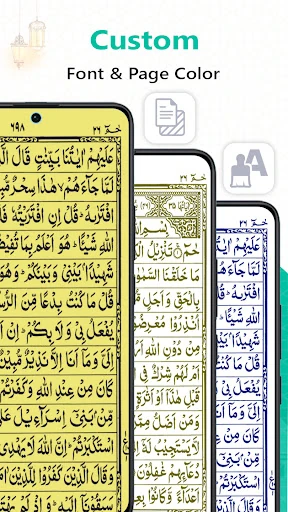 Custom
Font & Page Color
٦٩٨
حٰمٓ ٢٦
عَلَيْهِمْ اٰيٰتُنَا بَيِّنٰتٍ قَالَ
لَمَّا جَآءَهُمْ ۙ هٰذَا سِحْرٌ
افْتَرٰىهُ ؕ قُلْ اِنِ افْتَرَيْتُهٗ
اللّٰهِ شَيْـًٔا ؕ هُوَ اَعْلَمُ بِمَا تُفِيْضُ
شَهِيْدًۢا بَيْنِيْ وَبَيْنَكُمْ ؕ وَهُوَ
قُلْ مَا كُنْتُ بِدْعًا مِّنَ
يُفْعَلُ بِيْ وَلَا بِكُمْ ؕ اِنْ
اِلَيَّ وَمَاۤ اَنَا اِلَّا نَذِيْرٌ
كَانَ مِنْ عِنْدِ اللّٰهِ
مِّنْۢ بَنِيْۤ اِسْرَآءِيْلَ
اسْتَكْبَرْتُمْ ؕ اِنَّ اللّٰهَ لَا يَهْدِي
وَقَالَ الَّذِيْنَ كَفَرُوْا لِلَّذِيْنَ
سَبَقُوْنَاۤ اِلَيْهِ
حٰمٓ ٢٦
بِسْمِ اللّٰهِ
حٰمٓ ۚ تَنْزِيْلُ
مَا خَلَقْنَا السَّمٰوٰتِ
بِالْحَقِّ وَاَجَلٍ
اُنْذِرُوْا مُعْرِضُوْنَ
مِنْ دُوْنِ اللّٰهِ
لَهُمْ شِرْكٌ فِي
وَمَنْ اَضَلُّ
لَّا يَسْتَجِيْبُ لَهٗۤ
دُعَآئِهِمْ غٰفِلُوْنَ
اَعْدَآءً وَّكَانُوْا
حٰمٓ ٢٦
عَلَيْهِمْ اٰيٰتُنَا
لَمَّا جَآءَهُمْ
افْتَرٰىهُ ؕ قُلْ
اللّٰهِ شَيْـًٔا
شَهِيْدًۢا بَيْنِيْ
قُلْ مَا كُنْتُ
يُفْعَلُ بِيْ
اِلَيَّ وَمَاۤ اَنَا
كَانَ مِنْ عِنْدِ
مِّنْۢ بَنِيْۤ
اسْتَكْبَرْتُمْ
وَقَالَ الَّذِيْنَ